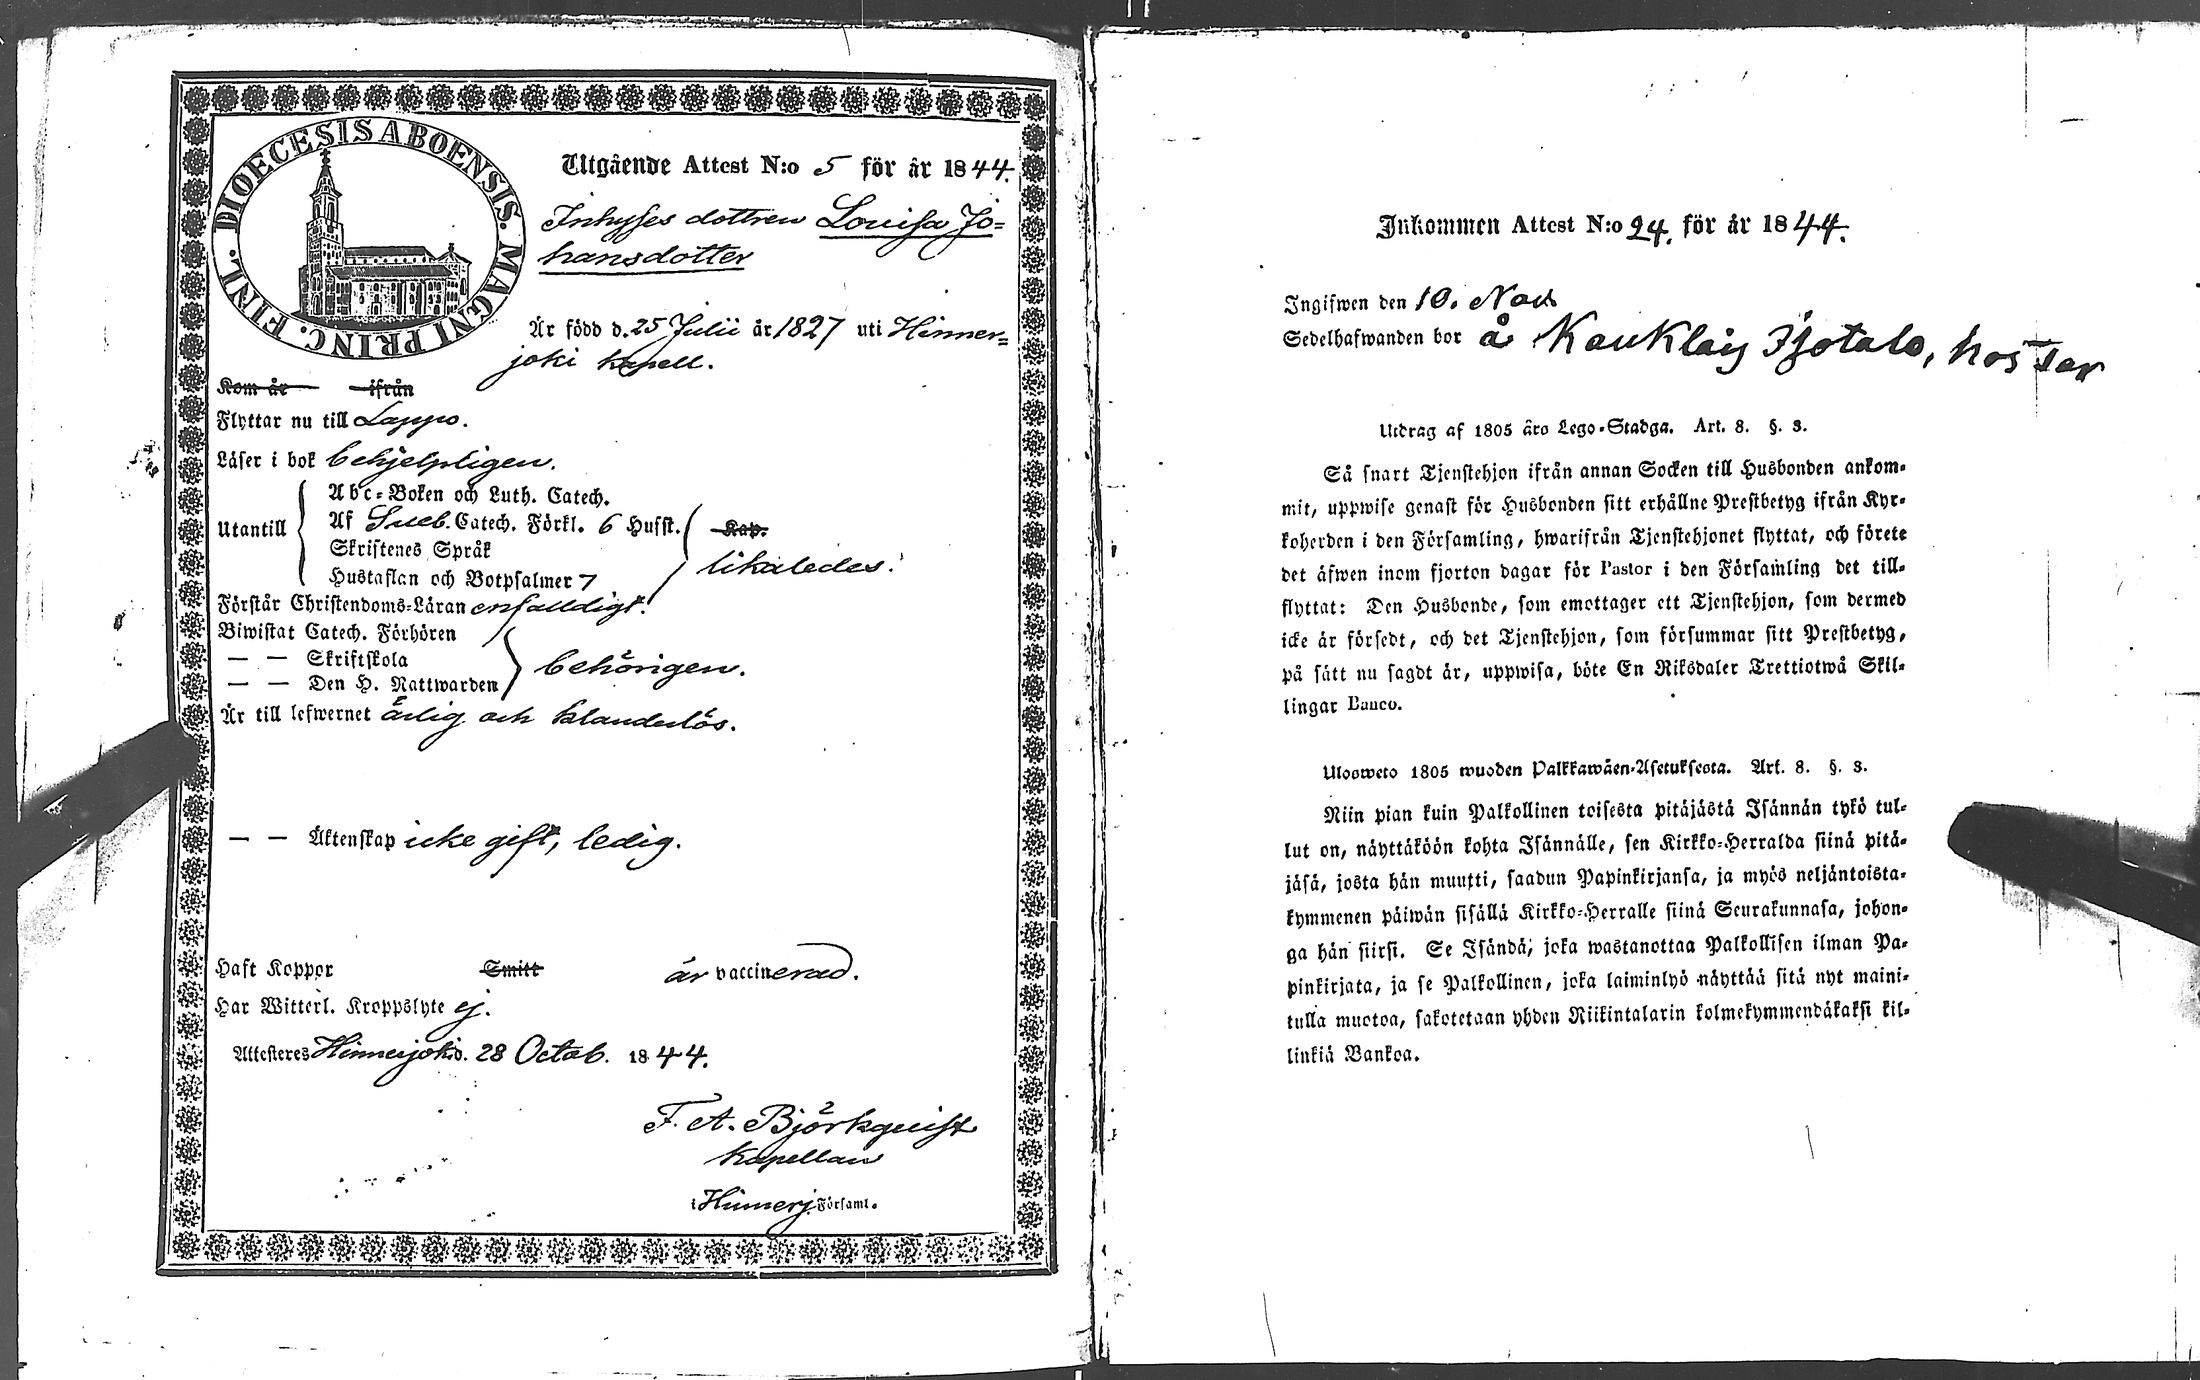 DIOECESIS ABOENSIS. MAGNI PRINC. FINL.
Utgående Attest N:o 5 för år 1844.
Inhyses dottren Louisa Jo=
hansdotter
Är född d. 25 Julii år 1827 uti Hinner=
joki kapell.
Kom år ifrån
Flyttar nu till Lappo.
Läser i bok behjelpligen.
Utantill
Abc-Boken och Luth. Catech.
Af Sueb. Catech. Förkl. 6 Husst. Kap.
Skriftenes Språk
likaledes.
Hustaflan och Botpsalmer 7
Förstår Christendoms-Läran enfalldigt.
Biwistat Catech. Förhören
— — Skriftskola
behörigen.
— — Den H. Nattwarden
Är till lefwernet ärlig och klanderlös.
— — Äktenskap icke gift, ledig.
Haft Koppor Smitt är vaccinerad.
Har Witterl. Kroppslyte ej.
Attesteres Hinnerjoki d. 28 Octob. 1844.
F. A. Björkqvist
Kapellan
i Hinnerj. Församl.
Inkommen Attest N:o 24. för år 1844.
Ingifwen den 10. Nov
Sedelhafwanden bor å hos
Utdrag af 1805 års Lego-Stadga. Art. 8. §. 3.
Så snart Tjenstehjon ifrån annan Socken till Husbonden ankom-
mit, uppwise genast för Husbonden sitt erhållne Prestbetyg ifrån Kyr-
koherden i den Församling, hwarifrån Tjenstehjonet flyttat, och förete
det äfwen inom fjorton dagar för Pastor i den Församling det till-
flyttat: Den Husbonde, som emottager ett Tjenstehjon, som dermed
icke är försedt, och det Tjenstehjon, som försummar sitt Prestbetyg,
på sätt nu sagdt är, uppwisa, böte En Riksdaler Trettiotwå Skil-
lingar Banco.
Ulosweto 1805 wuoden Palkkawäen-Asetuksesta. Art. 8. §. 3.
Niin pian kuin Palkollinen toisesta pitäjästä Isännän tykö tul-
lut on, näyttäköön kohta Isännälle, sen Kirkko-Herralda siinä pitä-
jäsä, josta hän muutti, saadun Papinkirjansa, ja myös neljäntoista-
kymmenen päiwän sisällä Kirkko-Herralle siinä Seurakunnasa, johon-
ga hän siirsi. Se Isändä, joka wastanottaa Palkollisen ilman Pa-
pinkirjata, ja se Palkollinen, joka laiminlyö näyttää sitä nyt maini-
tulla muotoa, sakotetaan yhden Riikintalarin kolmekymmendäkaksi kil-
linkiä Bankoa.